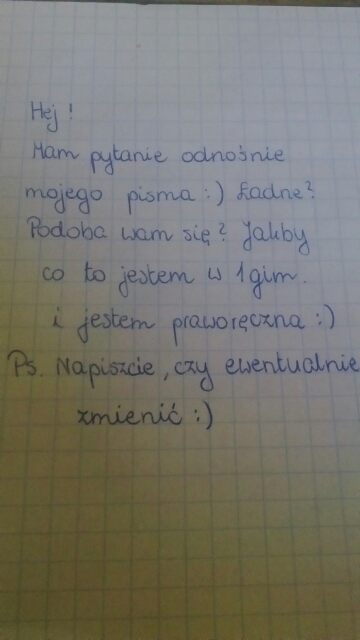 Hej!
Mam pytanie odnośnie
mojego pisma :) Ładne?
Podoba wam się? Jakby
co to jestem w 1 gim.
i jestem praworęczna :)
Ps. Napiszcie, czy ewentualnie
zmienić :)